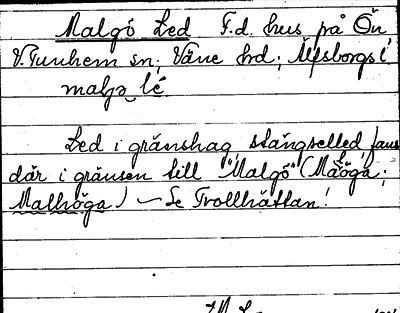 Malgö Led F.d. hus på Ön
V. Tunhem sn; Väne hrd; Älfsborgs l
malgə lé
Led i gränshag stängselled, fans
där i gränsen till "Malgö" (Maöga;
Malhöga) — Se Trollhättan!